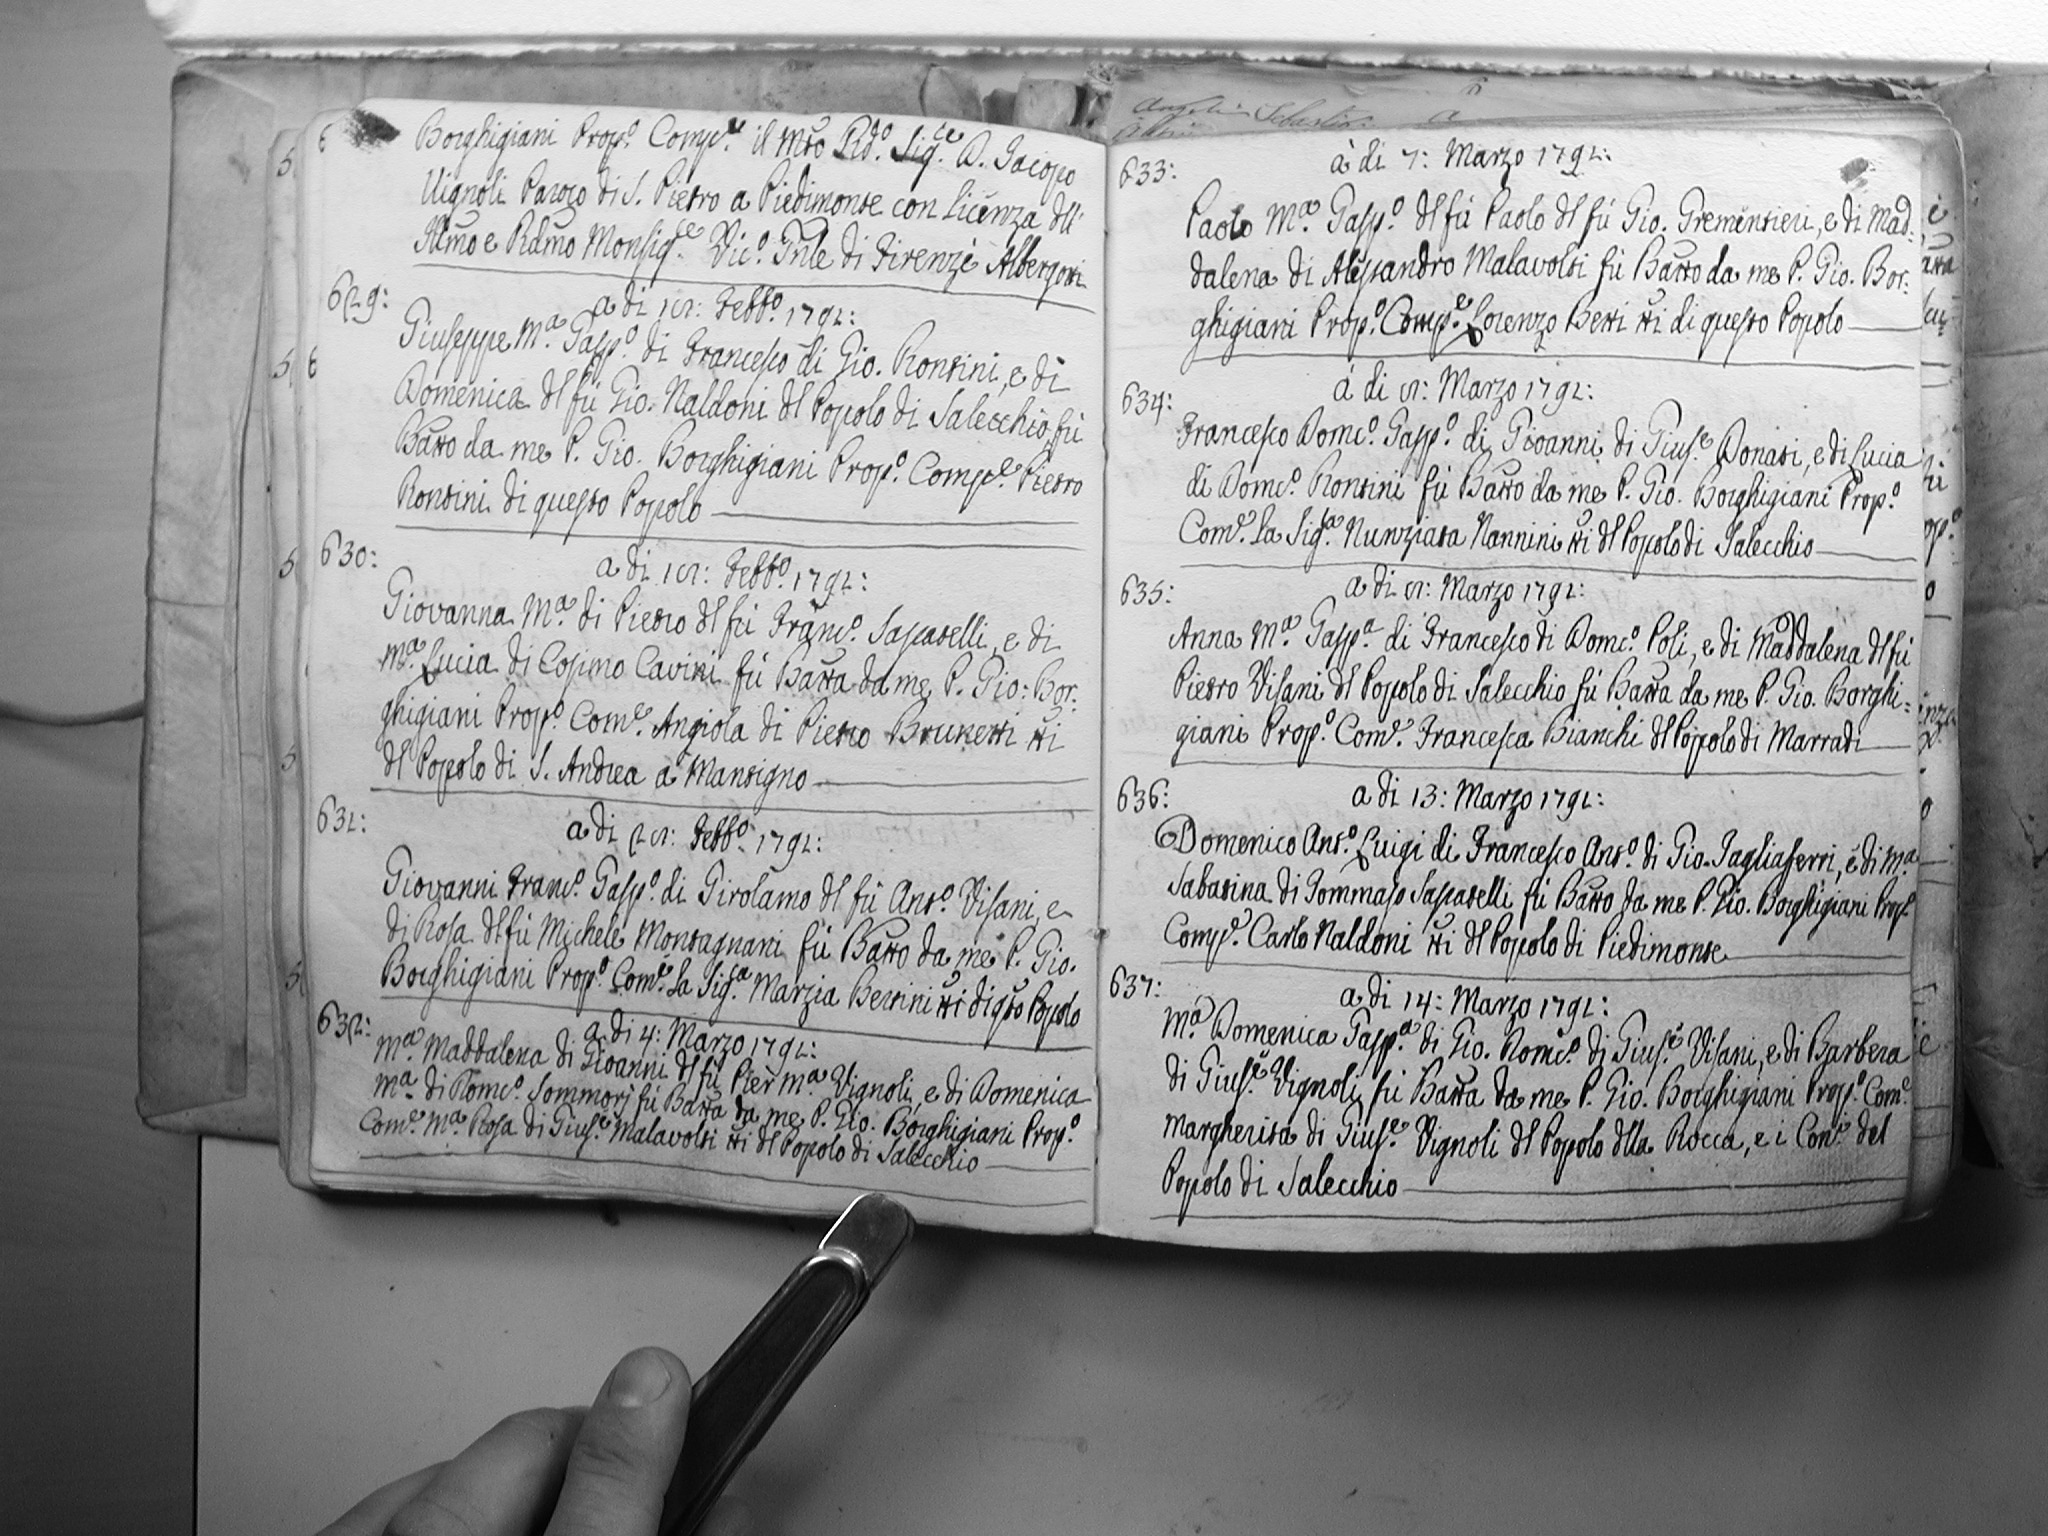 Borghigiani Prop.o Comp.e il Mto Rdo. Sig.re D. Jacopo
Vignoli Paroco di S. Pietro a Piedimonte con licenza dll'
Illmo e Rdmo Monsig.re Vic.o Gnle di Firenze Albergotti
629:
a di 15: Febb.o 1792:
Giuseppe M.a Gasp.o di Francesco di Gio. Rontini, e di
Domenica dl fù Gio. Naldoni dl Popolo di Salecchio, fù
Batto da me P. Gio. Borghigiani Prop.o Comp.e Pietro
Rontini di questo Popolo
630:
a di 15: Febb.o 1792:
Giovanna M.a di Pietro dl fù Franc.o Sapatelli, e di
M.a Lucia di Cosimo Cavini fù Batta da me P. Gio: Bor:
ghigiani Prop.o Com.e Angiola di Pietro Brunetti tti
dl Popolo di S. Andrea a Mantigno
631:
a di 25: Febb.o 1792:
Giovanni Franc.o Gasp.o di Girolamo dl fù Ant.o Visani, e
di Rosa dl fù Michele Montagnani fù Batto da me P. Gio.
Borghigiani Prop.o Com.e la Sig.a Marzia Bettini tti di qto Popolo
632:
a di 4: Marzo 1792:
M.a Maddalena di Gioanni dl fù Pier M.a Vignoli, e di Domenica
M.a di Dom.co Sommorj fù Batta da me P. Gio. Borghigiani Prop.o
Com.e M.a Rosa di Gius.e Malavolti tti dl Popolo di Salecchio
633:
à di 7: Marzo 1792:
Paolo M.a Gasp.o dl fù Paolo dl fù Gio. Grementieri, e di Mad:
dalena di Alessandro Malavolti fù Batto da me P. Gio. Bor:
ghigiani Prop.o Comp.e Lorenzo Betti tti di questo Popolo
634:
à di 5: Marzo 1792:
Francesco Dom.co Gasp.o di Gioanni di Gius.e Donati, e di Lucia
di Dom.co Rontini fù Batto da me P. Gio. Borghigiani Prop.o
Com.e la Sig.a Nunziata Nannini tti dl Popolo di Salecchio
635:
a di 5: Marzo 1792:
Anna M.a Gasp.a di Francesco di Dom.co Poli, e di Maddalena dl fù
Pietro Visani dl Popolo di Salecchio fù Batta da me P. Gio. Borghi:
giani Prop.o Com.e Francesca Bianchi dl Popolo di Marradi
636:
a di 13: Marzo 1792:
Domenico Ant.o Luigi di Francesco Ant.o di Gio. Tagliaferri, e di M.a
Sabatina di Tommaso Sapatelli fù Batto da me P. Gio. Borghigiani Prop.o
Comp.e Carlo Naldoni tti dl Popolo di Piedimonte
637:
a di 14: Marzo 1792:
M.a Domenica Gasp.a di Gio. Dom.co di Gius.e Visani, e di Barbera
di Gius.e Vignoli fù Batta da me P. Gio. Borghigiani Prop.o Com.e
Margherita di Gius.e Vignoli dl Popolo dlla Rocca, e i Con.i del
Popolo di Salecchio